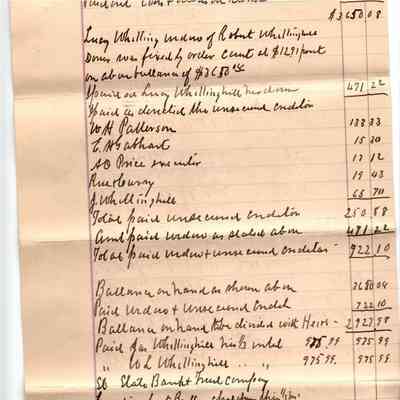 $3650 08
Lucy Whilling widow of Robert Whillinghill
Dower was fixed by order court at $1291 pact
on above ballance of $3650
paid Lucy Whillinghill her dower 471 22
paid as directed the unsecured creditor
W H Patterson 133 33
C. A Gabhart 15 30
AD Price executor 17 12
Rue & Curry 19 43
J. Whillinghill 65 70
Total paid unsecured creditor 250 58
Amt paid widow as stated above 471 22
Total paid widow & unsecured creditor - 722 10
Ballance on hand as shown above 3650 08
Paid widow & unsecured credit 722 10
Ballance on hand to be divided with Heirs - 2927 98
Paid Jas Whillinghill 975.99 975 99
" W L Whillinghill . . " 975.99. 975 99
State Bank & Trust company